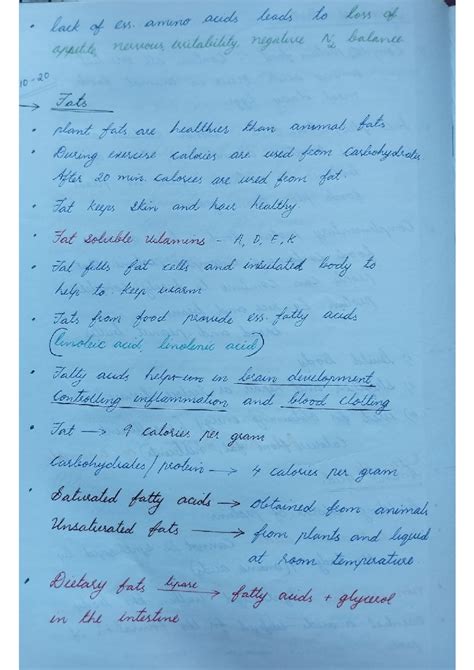 • lack of ess. amino acids leads to loss of
appetite, nervous irritability, negative N₂ balance
10-20
→ Fats
• plant fats are healthier than animal fats
• During exercise calories are used from carbohydrates
After 20 min. calories are used from fat.
• Fat keeps skin and hair healthy
• Fat soluble vitamins - A, D, E, K
• Fat fills fat cells and insulated body to
help to keep warm
• Fats from food provide ess. fatty acids
(linoleic acid, linolenic acid)
• Fatty acids helps in brain development,
controlling inflammation and blood clotting
• Fat → 9 calories per gram
Carbohydrates / protein → 4 calories per gram
• Saturated fatty acids → obtained from animals
Unsaturated fats → from plants and liquid
at room temperature
• Dietary fats lipase→ fatty acids + glycerol
in the intestine